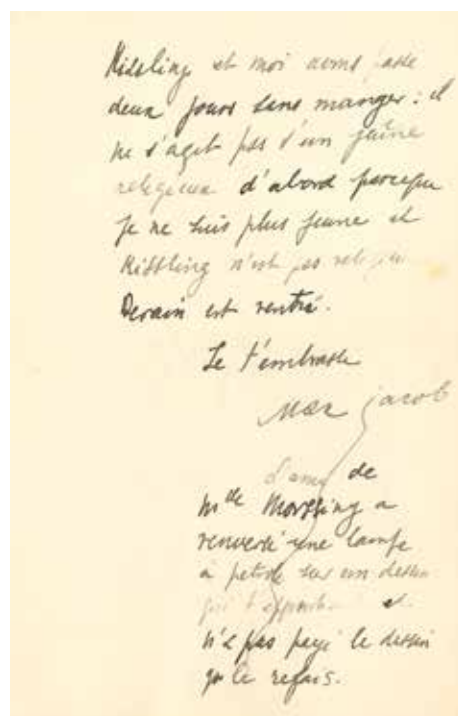 Kissling et moi avons passé
deux jours sans manger : il
ne s'agit pas d'un jeûne
religieux d'abord parceque
je ne suis plus jeune et
Kissling n'est pas religieux
Derain est rentré.
Je t'embrasse
Max Jacob
L'ami de
Mde Morssing a
renversé une lampe
à petrole sur un dessin
qui t'appart et
n'a pas payé le dessin
je le refais.